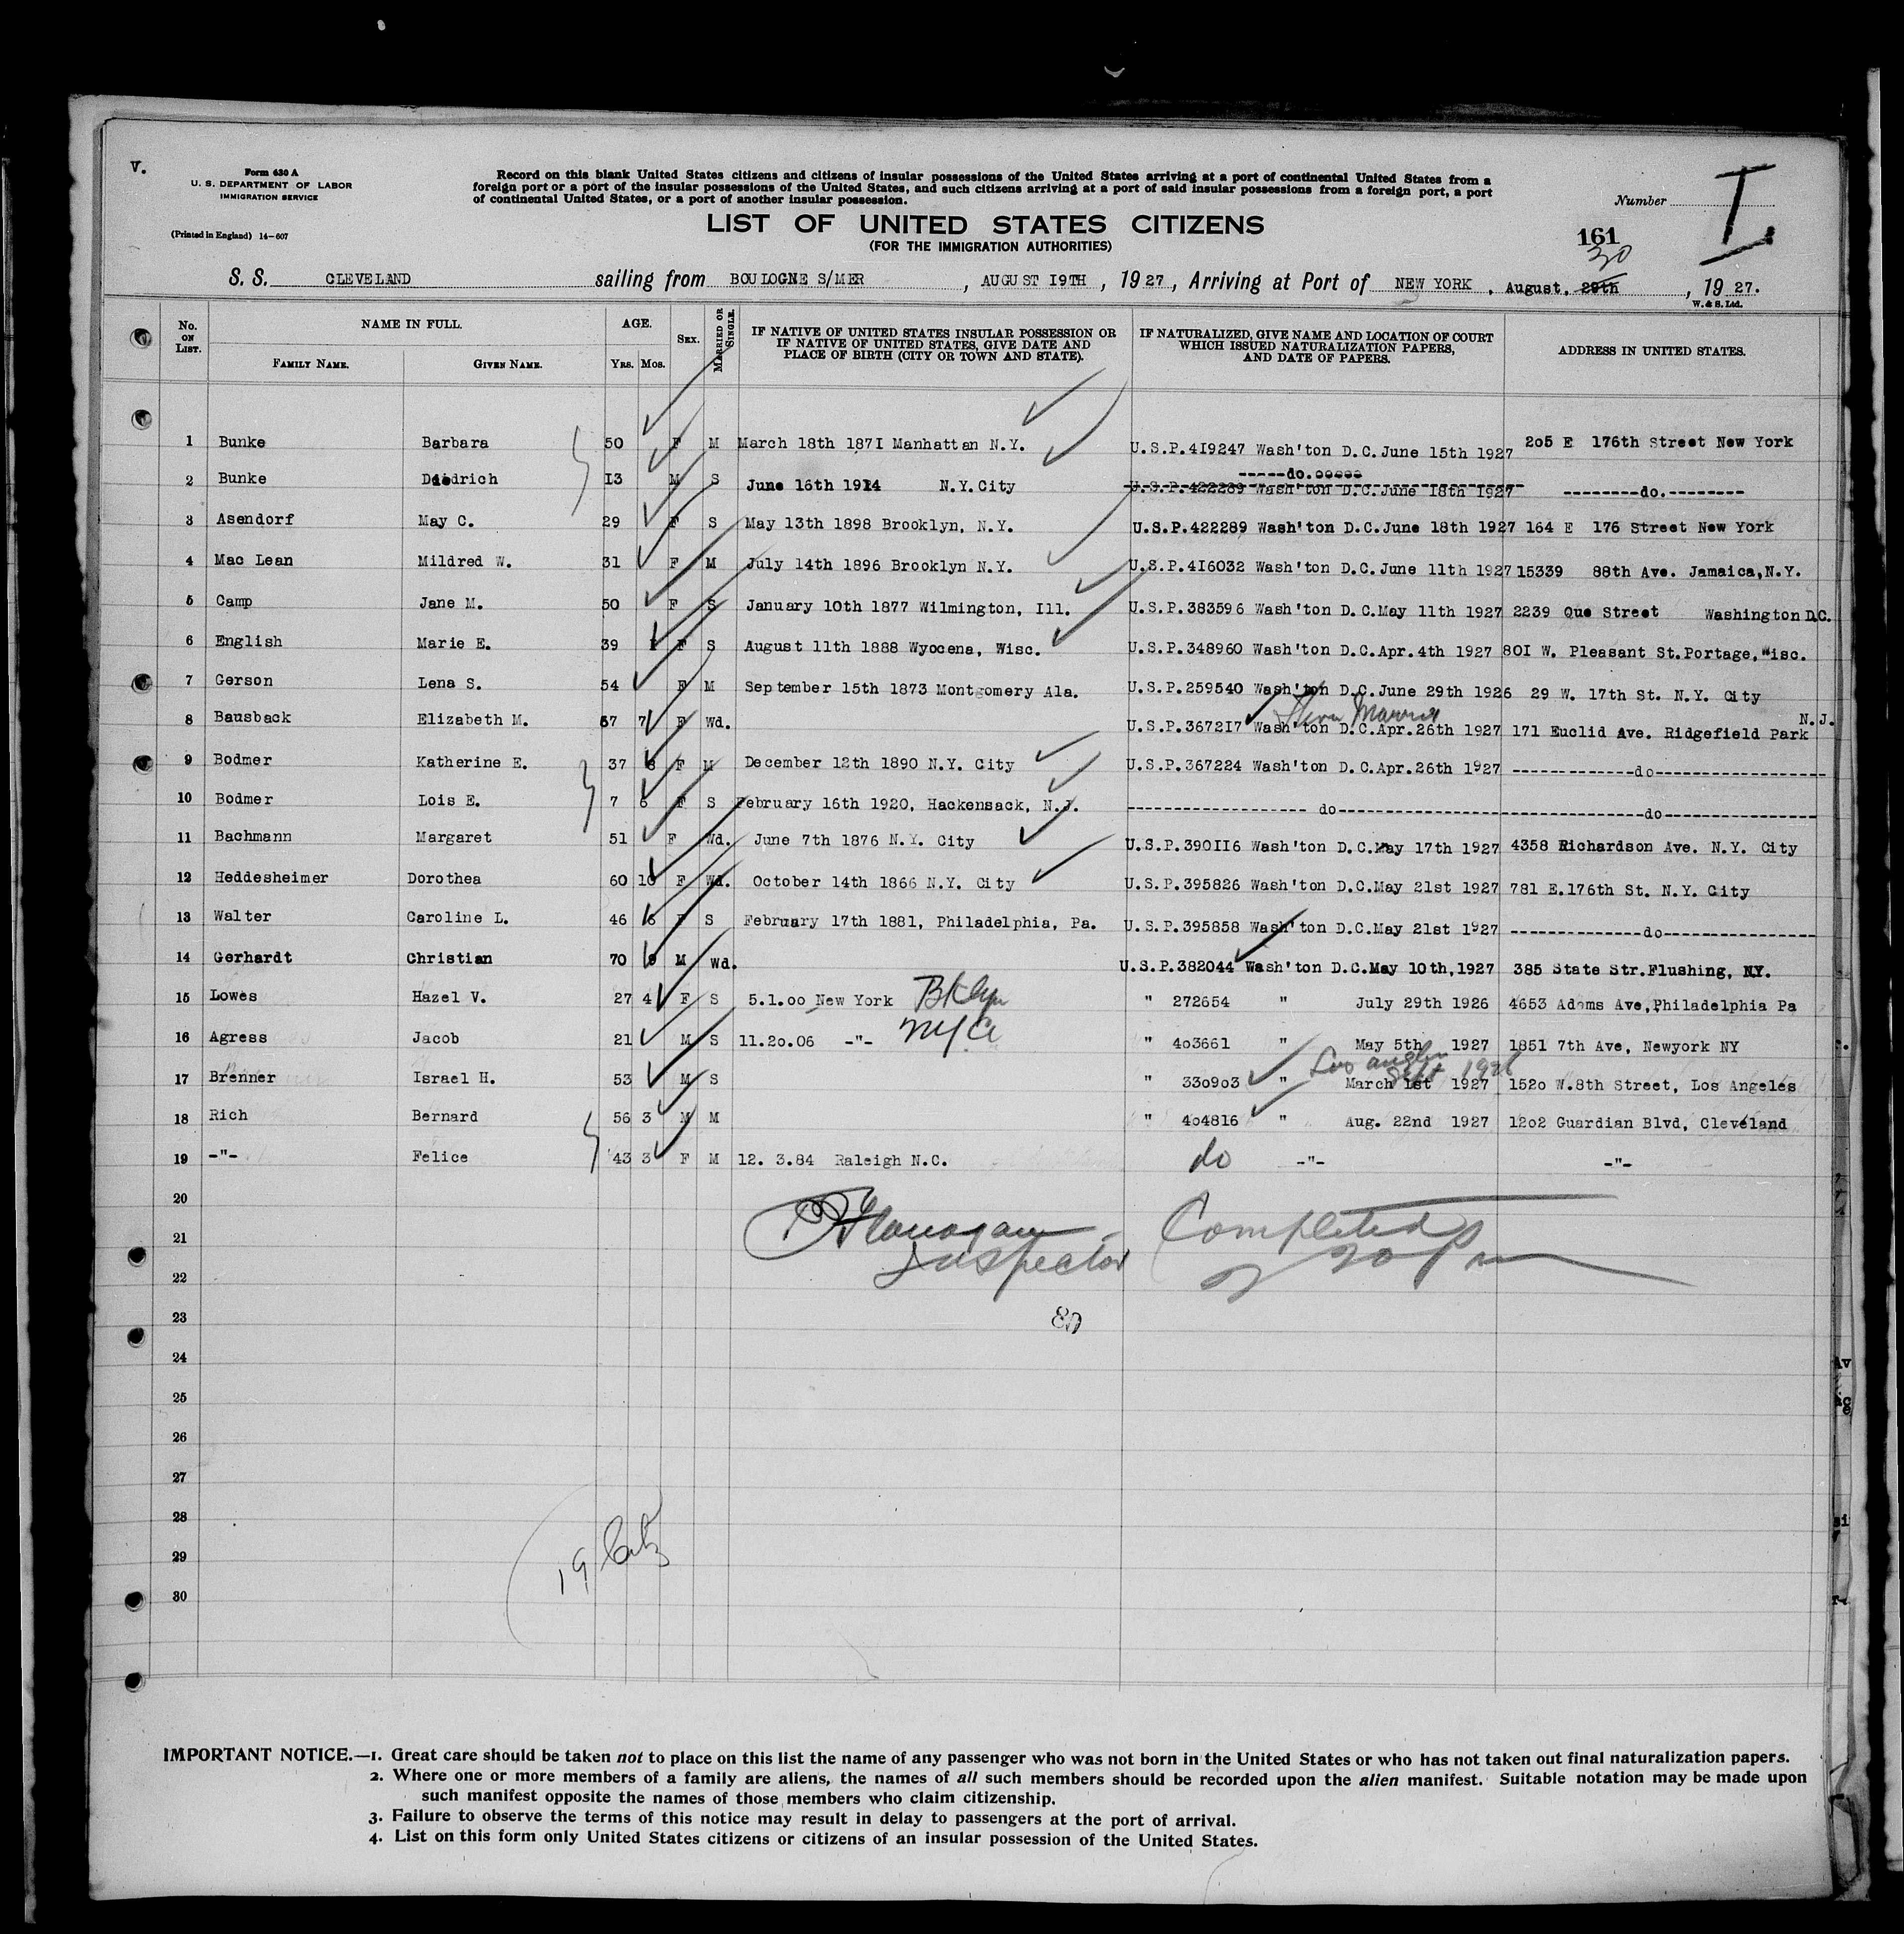 V.
Form 630 A
U. S. DEPARTMENT OF LABOR
IMMIGRATION SERVICE
(Printed in England) 14-607
Record on this blank United States citizens and citizens of insular possessions of the United States arriving at a port of continental United States from a
foreign port or a port of the insular possessions of the United States, and such citizens arriving at a port of said insular possessions from a foreign port, a port
of continental United States, or a port of another insular possession.
LIST OF UNITED STATES CITIZENS
(FOR THE IMMIGRATION AUTHORITIES)
Number I.
161
30
S. S. CLEVELAND sailing from BOULOGNE S/MER, AUGUST 19TH, 1927, Arriving at Port of NEW YORK, August, 29th, 1927.
W. & S. Ltd.
No. ON LIST. NAME IN FULL. AGE. SEX. MARRIED OR SINGLE. IF NATIVE OF UNITED STATES INSULAR POSSESSION OR IF NATIVE OF UNITED STATES, GIVE DATE AND PLACE OF BIRTH (CITY OR TOWN AND STATE). IF NATURALIZED, GIVE NAME AND LOCATION OF COURT WHICH ISSUED NATURALIZATION PAPERS, AND DATE OF PAPERS. ADDRESS IN UNITED STATES.
FAMILY NAME. GIVEN NAME. YRS. MOS.
1 Bunke Barbara 50 F M March 18th 1871 Manhattan N.Y. U.S.P.419247 Wash'ton D.C.June 15th 1927 205 E 176th Street New York
-----do.-----
2 Bunke Diedrich 13 M S June 16th 1914 N.Y.City U.S.P.422289 Wash'ton D.C.June 18th 1927 --------do.--------
3 Asendorf May C. 29 F S May 13th 1898 Brooklyn, N.Y. U.S.P.422289 Wash'ton D.C.June 18th 1927 164 E 176 Street New York
4 Mac Lean Mildred W. 31 F M July 14th 1896 Brooklyn N.Y. U.S.P.416032 Wash'ton D.C.June 11th 1927 15339 88th Ave. Jamaica,N.Y.
5 Camp Jane M. 50 F S January 10th 1877 Wilmington, Ill. U.S.P.383596 Wash'ton D.C.May 11th 1927 2239 Que Street Washington D.C.
6 English Marie E. 39 F S August 11th 1888 Wyocena, Wisc. U.S.P.348960 Wash'ton D.C.Apr.4th 1927 801 W. Pleasant St.Portage,Wisc.
7 Gerson Lena S. 54 F M September 15th 1873 Montgomery Ala. U.S.P.259540 Wash'ton D.C.June 29th 1926 29 W. 17th St. N.Y. City
8 Bausback Elizabeth M. 67 7 F Wd. U.S.P.367217 Wash'ton D.C.Apr.26th 1927 171 Euclid Ave. Ridgefield Park N.J.
9 Bodmer Katherine E. 37 8 F M December 12th 1890 N.Y. City U.S.P.367224 Wash'ton D.C.Apr.26th 1927 -------------do-------------------
10 Bodmer Lois E. 7 6 F S February 16th 1920, Hackensack, N.J. ------------------- do-------------------do----------------
11 Bachmann Margaret 51 F Wd. June 7th 1876 N.Y. City U.S.P.390116 Wash'ton D.C.May 17th 1927 4358 Richardson Ave. N.Y. City
12 Heddesheimer Dorothea 60 10 F Wd. October 14th 1866 N.Y. City U.S.P.395826 Wash'ton D.C.May 21st 1927 781 E.176th St. N.Y. City
13 Walter Caroline L. 46 6 F S February 17th 1881, Philadelphia, Pa. U.S.P.395858 Wash'ton D.C.May 21st 1927 --------------do----------------
14 Gerhardt Christian 70 9 M Wd. U.S.P.382044 Wash'ton D.C.May 10th,1927 385 State Str.Flushing, N.Y.
15 Lowes Hazel V. 27 4 F S 5.1.00 New York Bklyn " 272654 " July 29th 1926 4653 Adams Ave,Philadelphia Pa
16 Agress Jacob 21 M S 11.20.06 -"- NYC " 403661 " May 5th 1927 1851 7th Ave, Newyork NY
Los Angeles Sept 1926
17 Brenner Israel H. 53 M S " 330903 " March 1st 1927 1520 W.8th Street, Los Angeles
18 Rich Bernard 56 3 M M " 404816 " Aug. 22nd 1927 1202 Guardian Blvd, Cleveland
19 -"- Felice 43 3 F M 12. 3.84 Raleigh N.C. do -"- -"-
20
21 Flanagan Completed
22 Inspector
23 80
24
25
26
27
28
29 19
30
IMPORTANT NOTICE.—1. Great care should be taken not to place on this list the name of any passenger who was not born in the United States or who has not taken out final naturalization papers.
2. Where one or more members of a family are aliens, the names of all such members should be recorded upon the alien manifest. Suitable notation may be made upon
such manifest opposite the names of those members who claim citizenship.
3. Failure to observe the terms of this notice may result in delay to passengers at the port of arrival.
4. List on this form only United States citizens or citizens of an insular possession of the United States.